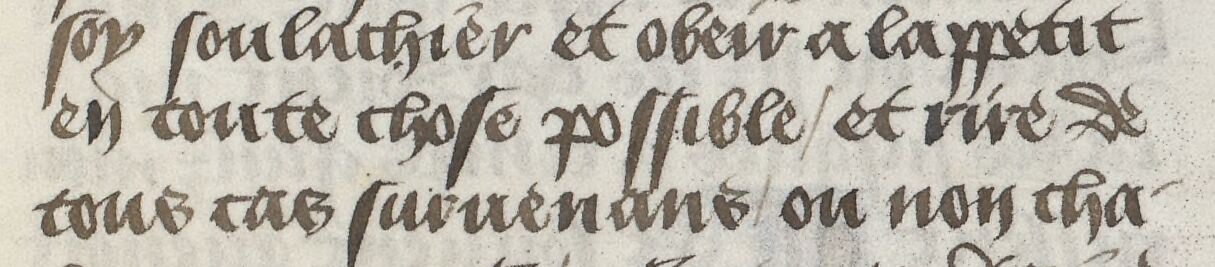 soy soulachier et obeir a lappetit
en toute chose possible / et rire de
tous cas suruenans / ou non cha-